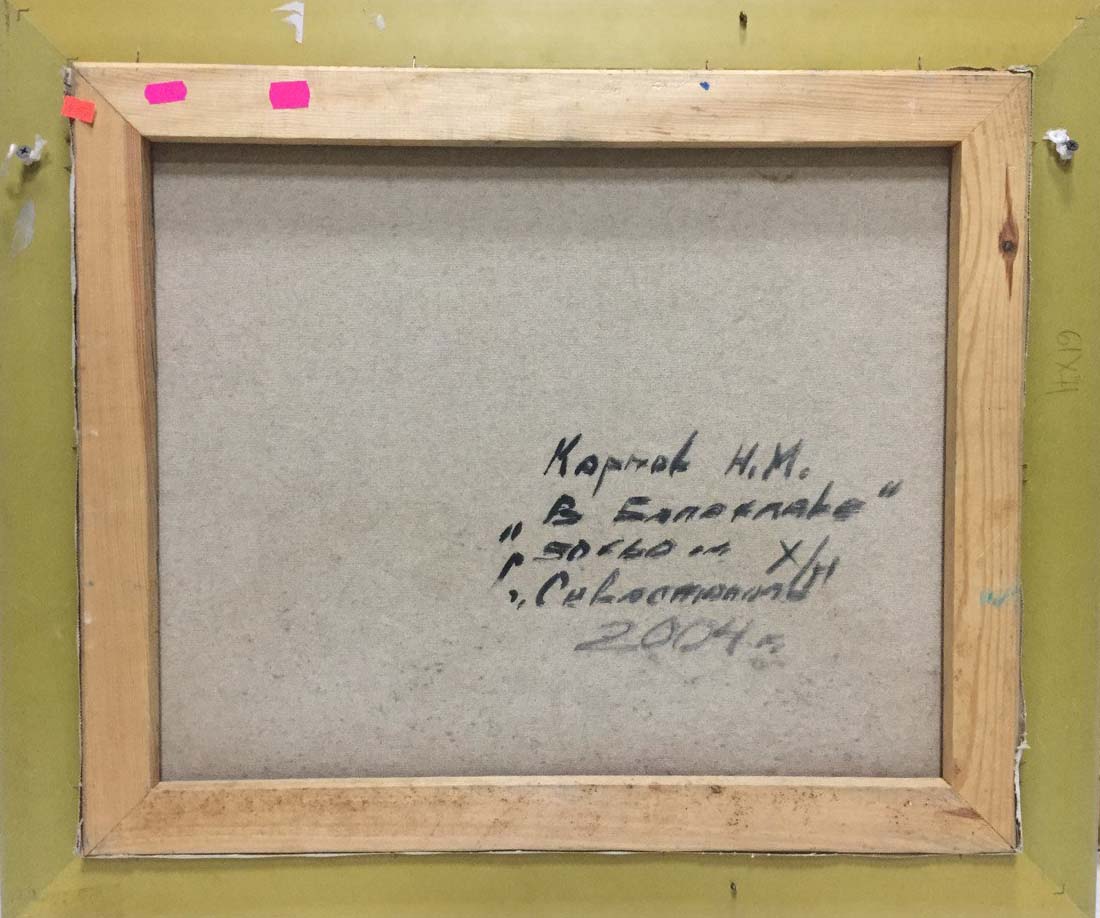 Карпов Н.М.
„В Балаклаве"
50х60 см Х/м
г. Севастополь
2004 г.